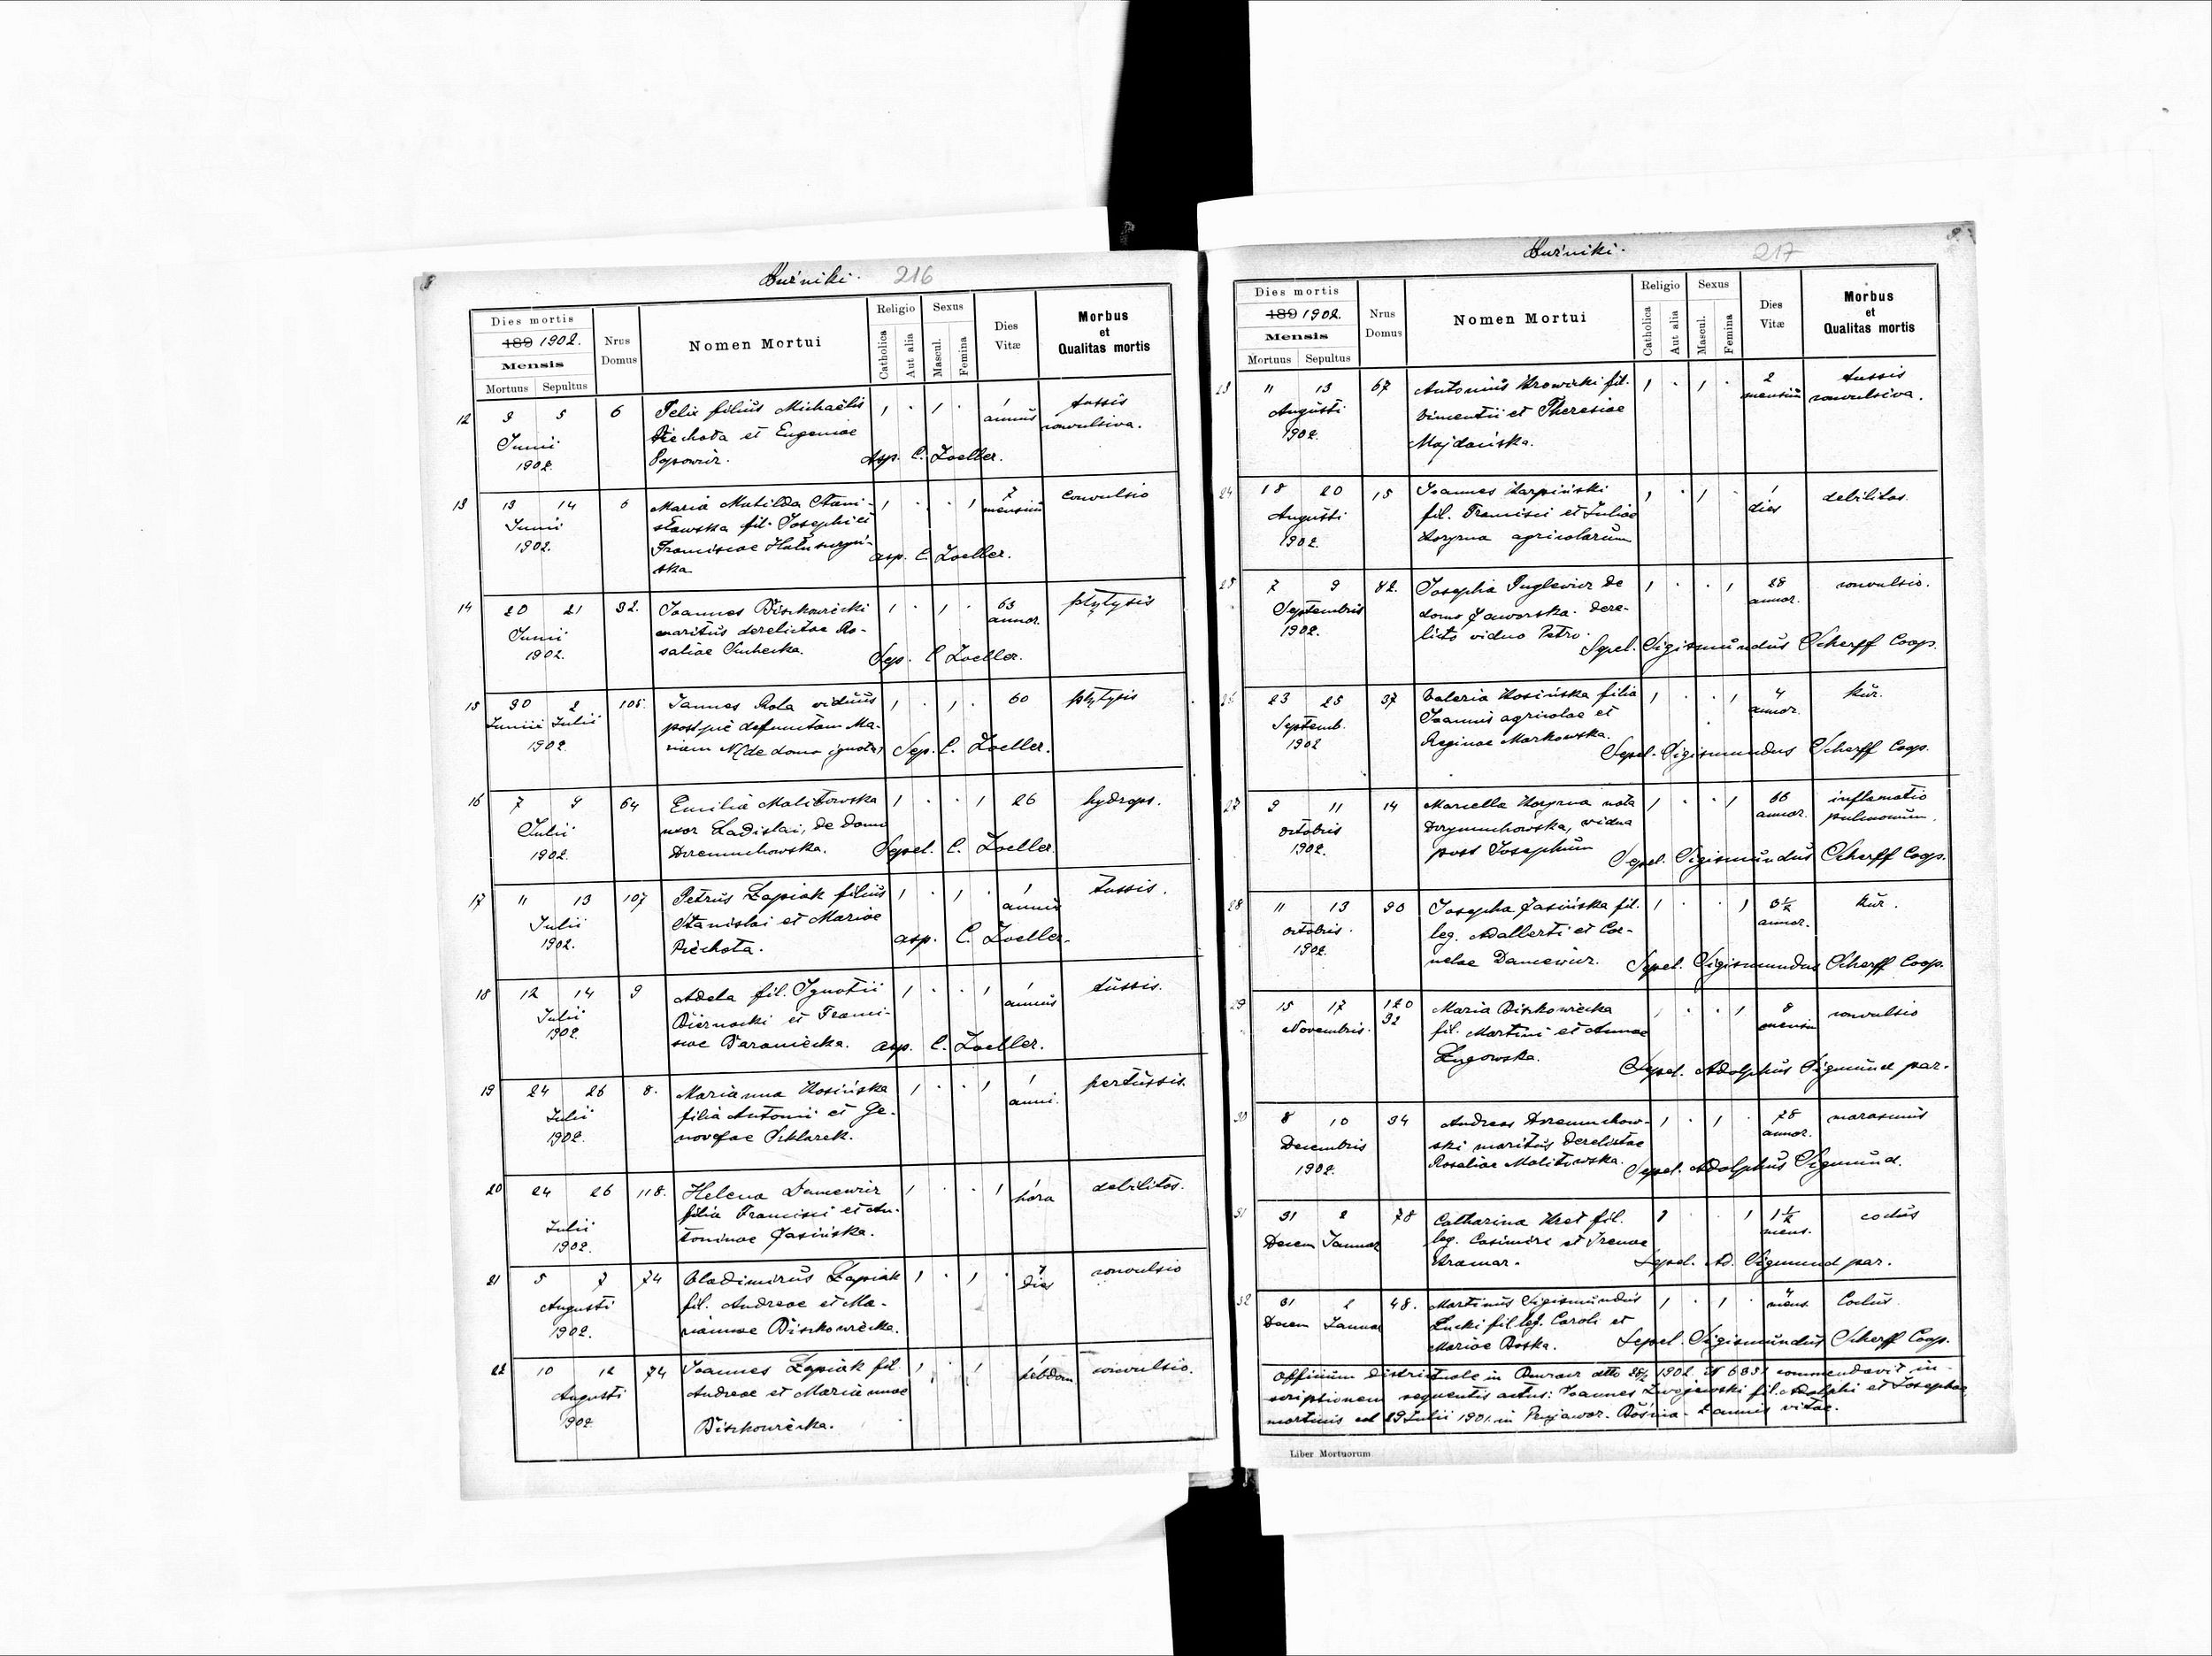 8
Kuźniki. 216
Dies mortis
189 1902.
Mensis
Mortuus Sepultus
Nrus Domus
Nomen Mortui
Religio
Catholica
Aut alia
Sexus
Mascul.
Femina
Dies Vitæ
Morbus
et
Qualitas mortis
12 3 5 6 Felix filius Michaëlis 1 · 1 · 1 annus tussis
Junii Piechota et Eugeniae convulsiva.
1902. asp. C. Zoeller.
13 13 14 6 Maria Matilda Stani- 1 · · 1 7 mensium convulsio
Junii sławska fil. Josephi et
1902. Franciscae asp. C. Zoeller.
ska
14 20 21 32. Joannes Biszkowiecki 1 · 1 · 63 annor. phtysis
Junii maritus derelictae Ro-
1902. saliae Suchecka. Sep. C. Zoeller.
15 30 2 105. Joannes Rola viduus 1 · 1 · 60 phtysis
Junii Julii post pie defunctam Ma-
1902. riam N/de domo ignota/ Sep. C. Zoeller.
16 7 9 64 Emilia Malitowska 1 · · 1 26 hydrops.
Julii uxor Ladislai, de domo
1902. Drzemuchowska. Sepel. C. Zoeller.
17 11 13 107 Petrus Łapiak filius 1 · 1 · 1 annus tussis.
Julii Stanislai et Mariae
1902. Piechota. asp. C. Zoeller.
18 12 14 9 Adela fil. Ignatii 1 · · 1 1 annus tussis.
Julii Biernacki et Franci-
1902. scae Baraniecka. asp. C. Zoeller.
19 24 26 8. Marianna Kosińska 1 · · 1 1 anni. pertussis.
Julii filia Antonii et Ge-
1902. novefae Szklarek.
20 24 26 118. Helena Dancewicz 1 · · 1 1 hora debilitas.
Julii filia Francisci et An-
1902. toninae Jasińska.
21 5 7 74 Vladimirus Łapiak 1 · 1 · 7 dies convulsio
Augusti fil. Andreae et Ma-
1902. riannae Biszkowiecka.
22 10 12 74 Joannes Łapiak fil. 1 · 1 1 hebdom. convulsio.
Augusti Andreae et Mariannae
902 Biszkowiecka.
Kuźniki. 217
9.
Dies mortis
189 1902.
Mensis
Mortuus Sepultus
Nrus Domus
Nomen Mortui
Religio
Catholica
Aut alia
Sexus
Mascul.
Femina
Dies Vitæ
Morbus
et
Qualitas mortis
23 11 13 67 Antonius Krowicki fil. 1 · 1 · 2 mensium tussis
Augusti Vincentii et Theresiae convulsiva.
1902. Majdańska.
24 18 20 15 Joannes Karpiński 1 · 1 · 1 dies debilitas.
Augusti fil. Francisci et Juliae
1902. Koryrna agricolarum
25 7 9 82. Josepha Puglewicz de 1 · · 1 28 annor. convulsio.
Septembris domo Jaworska. dere-
1902. licto viduo Petro. Sepel. Sigismundus Scherff Coop.
26 23 25 37 Valeria Kosińska filia 1 · · 1 4 annor. kür.
Septemb. Joannis agricolae et
1902 Reginae Markowska. Sepel. Sigismundus Scherff Coop.
27 9 11 14 Marcella Koryrna nata 1 · · 1 66 annor. inflamatio
octobris Drzymuchowska, vidua pulmonum.
1902. post Josephum Sepel. Sigismundus Scherff Coop.
28 11 13 90 Josepha Jasińska fil. 1 · · 1 3½ annor. kür.
octobris. leg. Adalberti et Cor-
1902 nelae Dancewicz. Sepel. Sigismundus Scherff Coop.
29 15 17 120 32 Maria Biszkowiecka 1 · · 1 8 mensiu convulsio
Novembris. fil. Martini et Annae
Ługowska. Sepel. Adolphus Sigmund par.
30 8 10 34 Andreas Drzemuchow- 1 · 1 · 78 annor. marasmus
Decembris ski maritus derelictae
1902. Rosaliae Malitowska. Sepel. Adolphus Sigmund.
31 31 2 78 Catharina Kret fil. 1 · · 1 1½ mens. coclus
Decem Januar leg. Casimiri et Irenae
Kramar. Sepel. Ad. Sigmund par.
32 31 2 48. Martinus Sigismundus 1 · 1 · 4 mens. Coclus.
Decem Januar Łucki fil. leg. Caroli et
Mariae Boska. Sepel. Sigismundus Scherff Coop.
Officium districtuale in 1902. N 6331 commendavit in-
scriptionem sequentis actus: Joannes fil. Adolphi et Josephae
mortuus est 29 Julii 1901. in Prnjawor. Bośnia. 2 annis vitae.
Liber Mortuorum